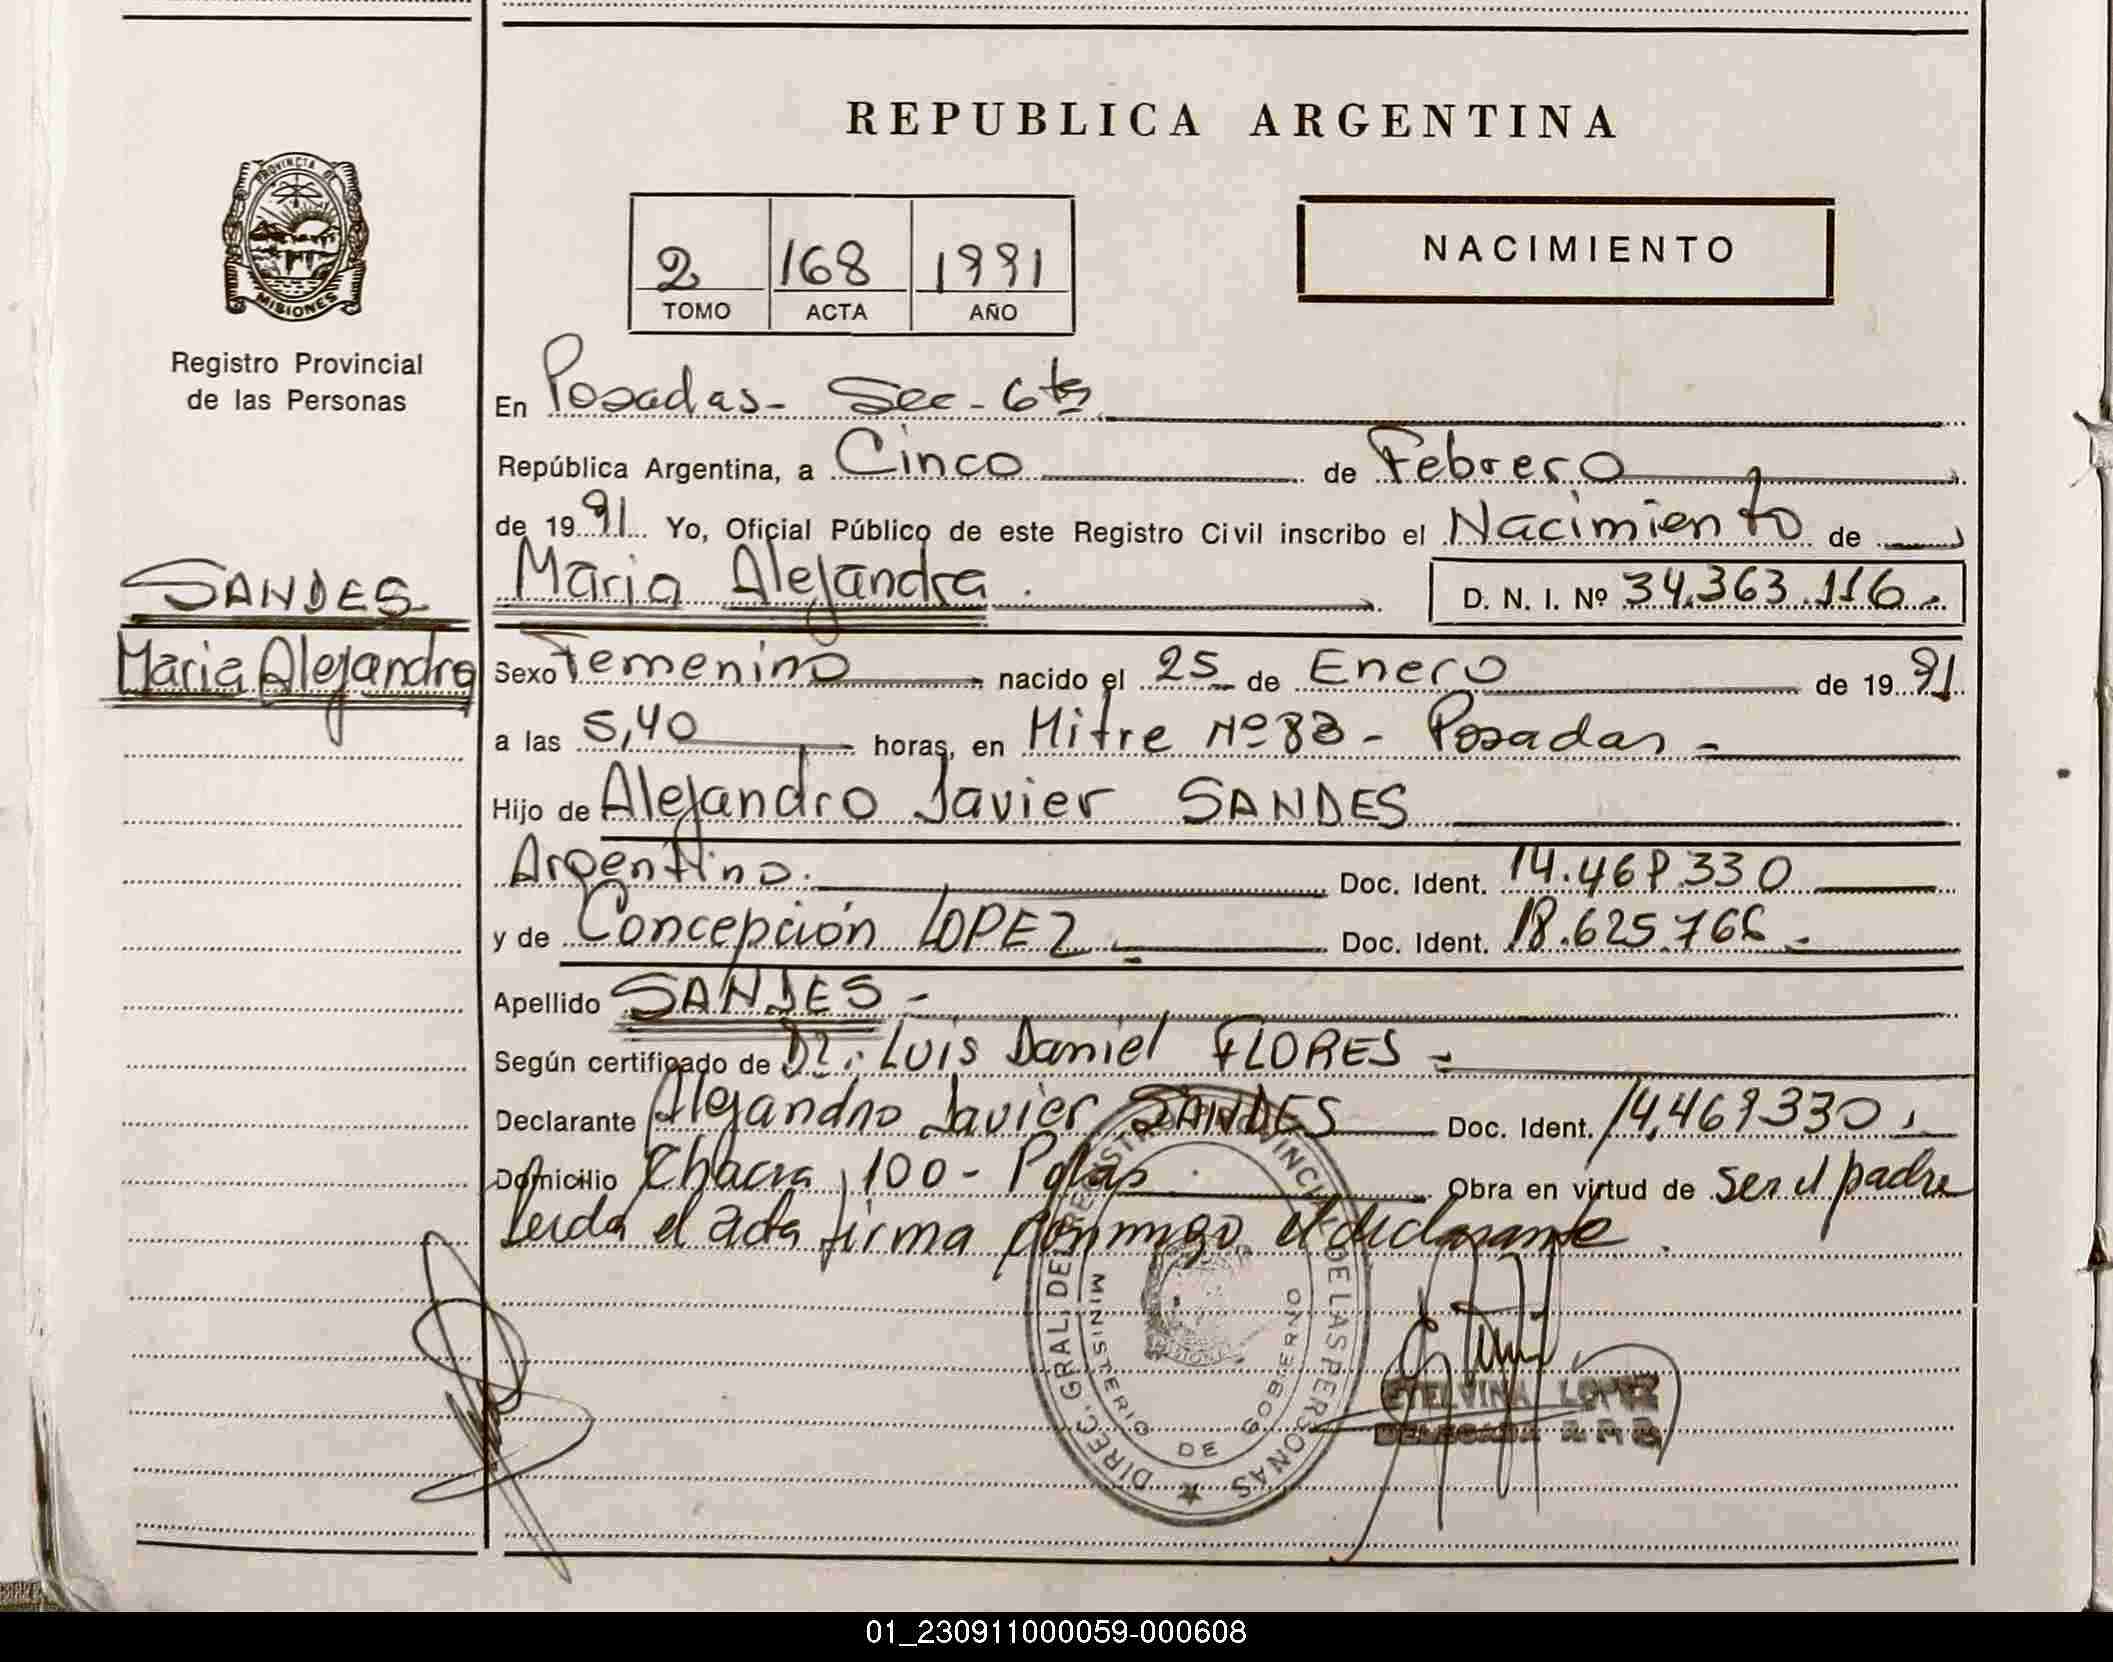 REPUBLICA ARGENTINA
PROVINCIA DE
MISIONES
Registro Provincial
de las Personas
NACIMIENTO
2 168 1991
TOMO ACTA AÑO
En Posadas- Sec- 6ta
República Argentina, a Cinco de Febrero
de 1991 Yo, Oficial Público de este Registro Civil inscribo el Nacimiento de
SANDES
Maria Alejandra
Maria Alejandra. D. N. I. Nº 34.363.116.-
Sexo Femenino nacido el 25 de Enero de 1991
a las 5,40 horas, en Mitre Nº 83 - Posadas -
Hijo de Alejandro Javier SANDES
Argentino. Doc. Ident. 14.469.330
y de Concepción LOPEZ.- Doc. Ident. 18.625.766.-
Apellido SANDES -
Según certificado de Dr. Luis Daniel FLORES -
Declarante Alejandro Javier SANDES Doc. Ident. 14,469330.
Domicilio Chacra 100 - Pdas Obra en virtud de ser el padre
Leida el acta firma conmigo el declarante.
DIREC. GRAL. DEL REGISTRO PROVINCIAL DE LAS PERSONAS
MINISTERIO DE GOBIERNO
ETELVINA LOPEZ
DELEGADA R P P
01_230911000059-000608